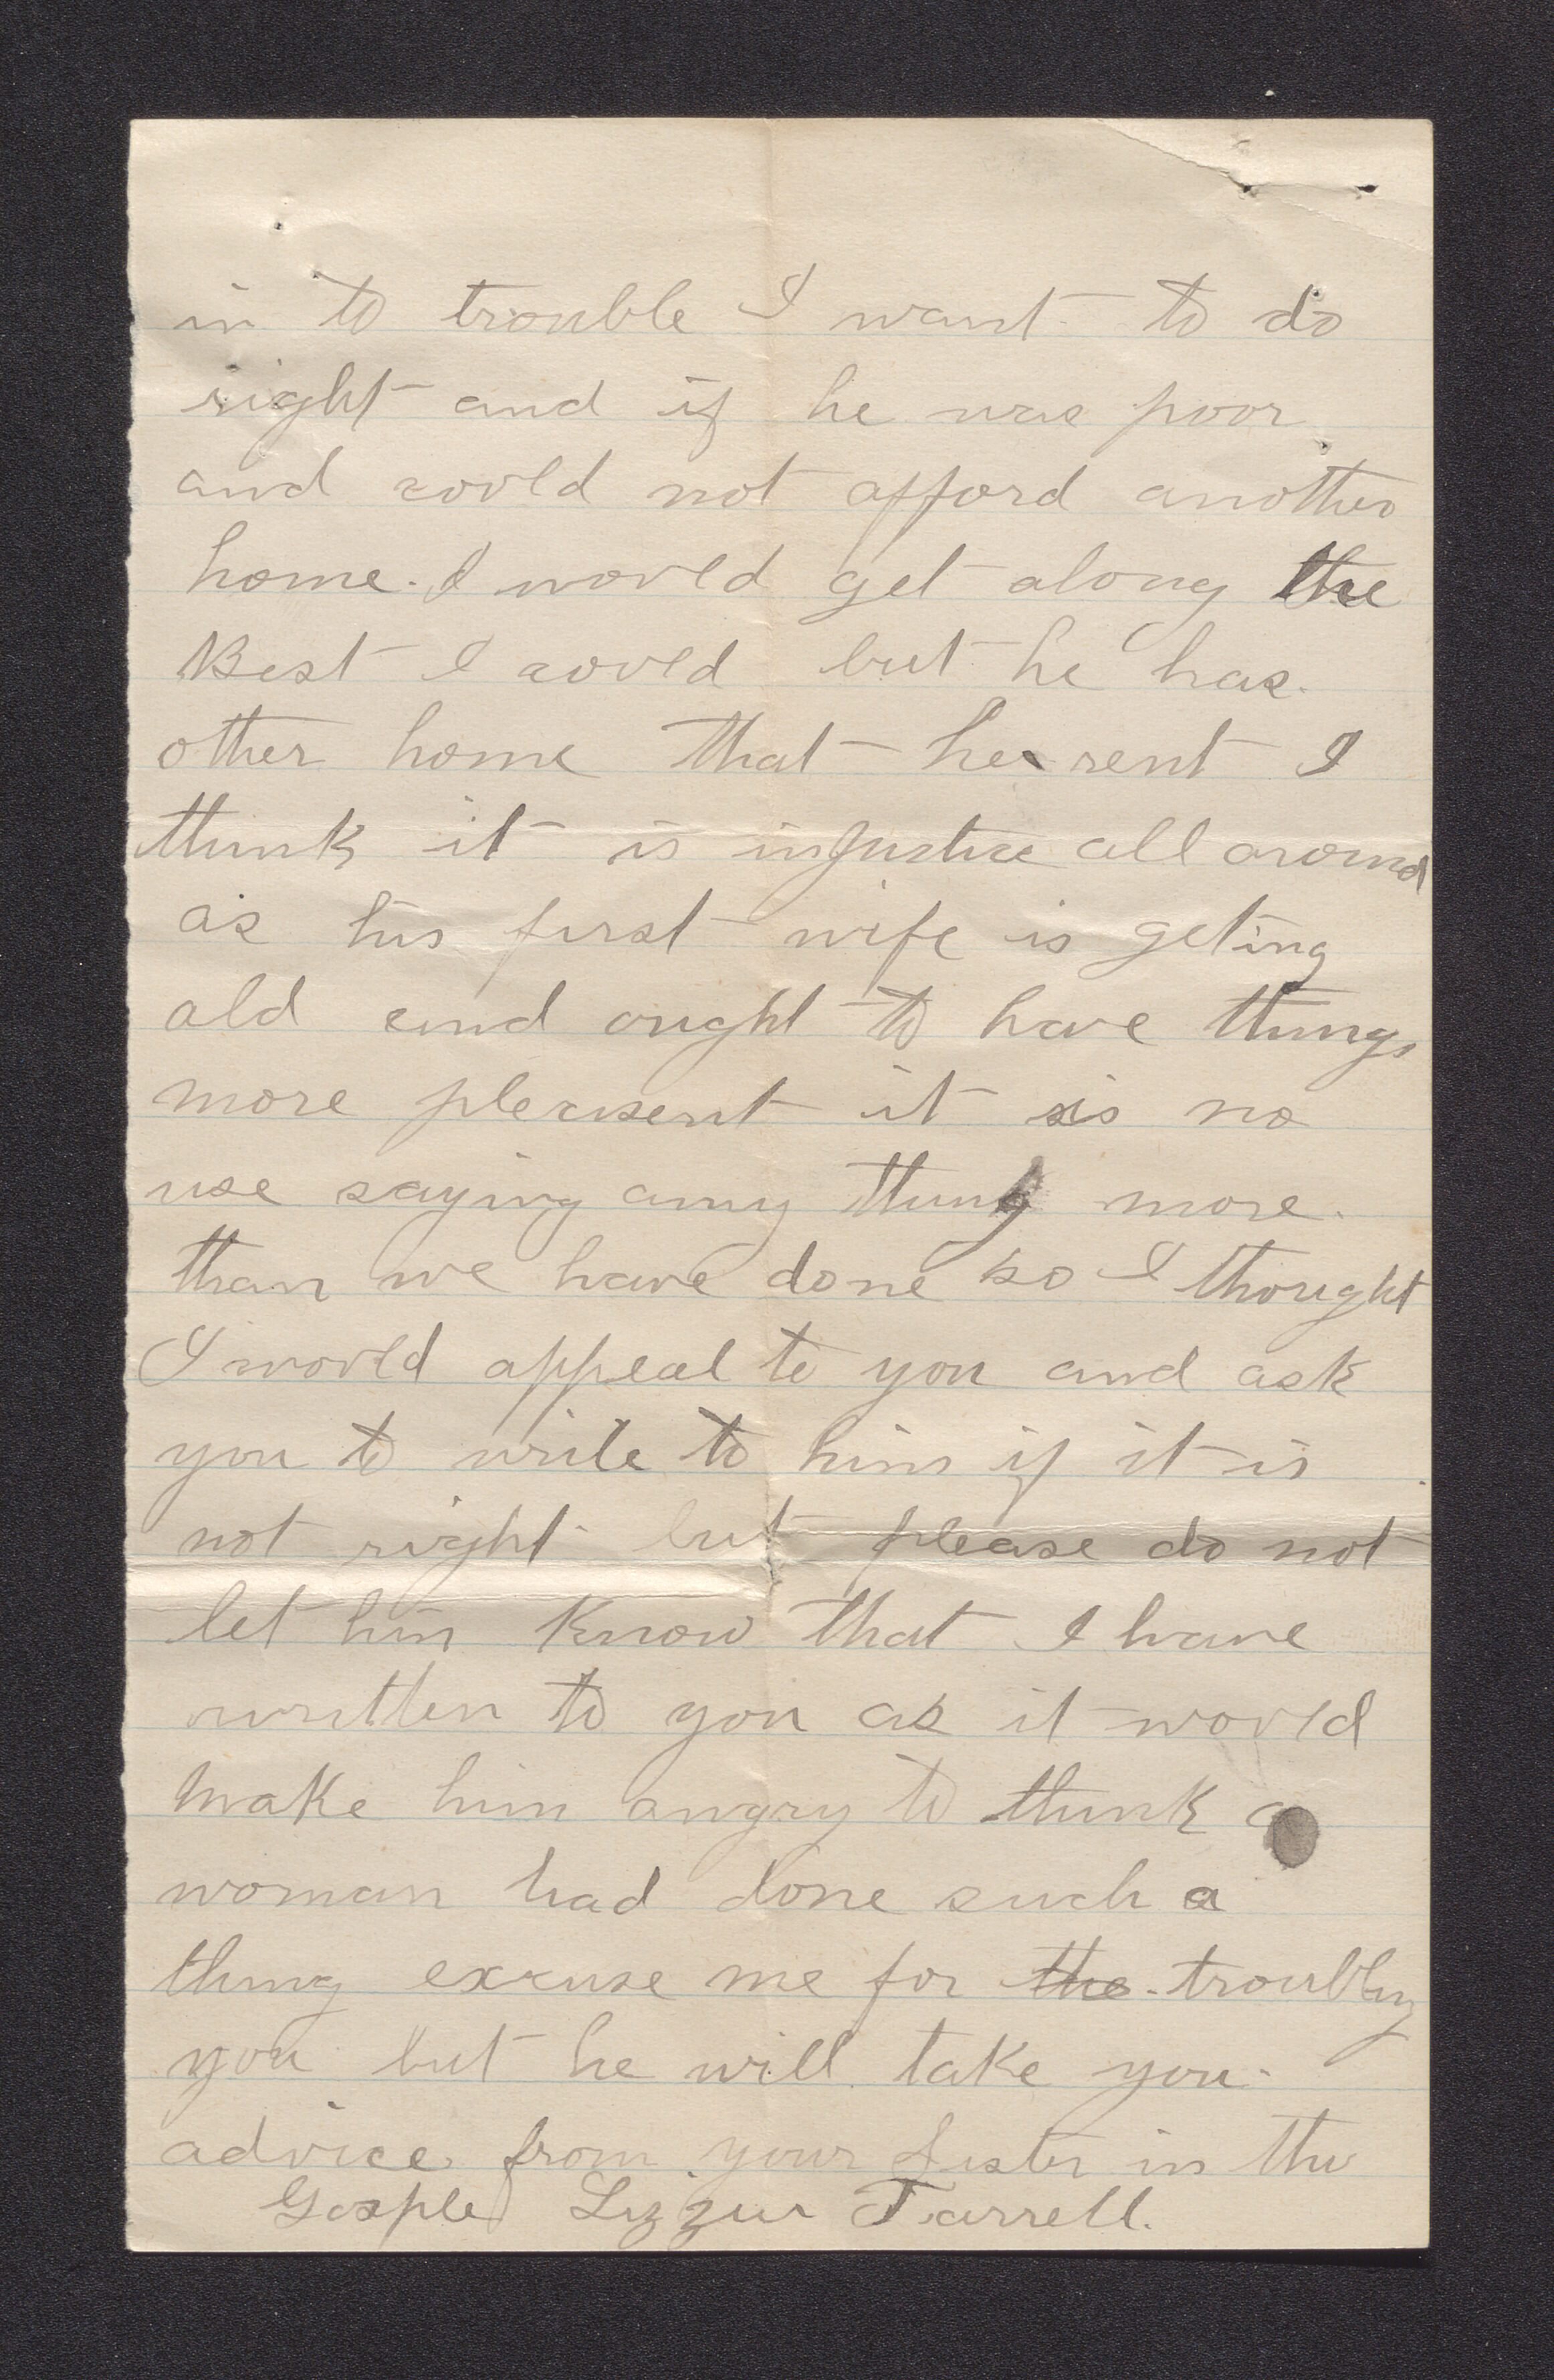 in to trouble I want to do
right and if he was poor
and coorld not afford another
home. I woorld get along the
Best I coorld but he has.
other home that he rent I
think it is injustice all around
as his first wife is geting
old and ought to have things
more pleasent it is no
use saying any thing more.
than we have done so I thought
I woorld appeal to you and ask
you to write to him if it is
not right but please do not
let him know that I have
written to you as it woorld
make him angry to think a
woman had done such a
thing excuse me for the troubling
you but he will take you
advice from your Sister in the
Gosple Lizzie Farrell.